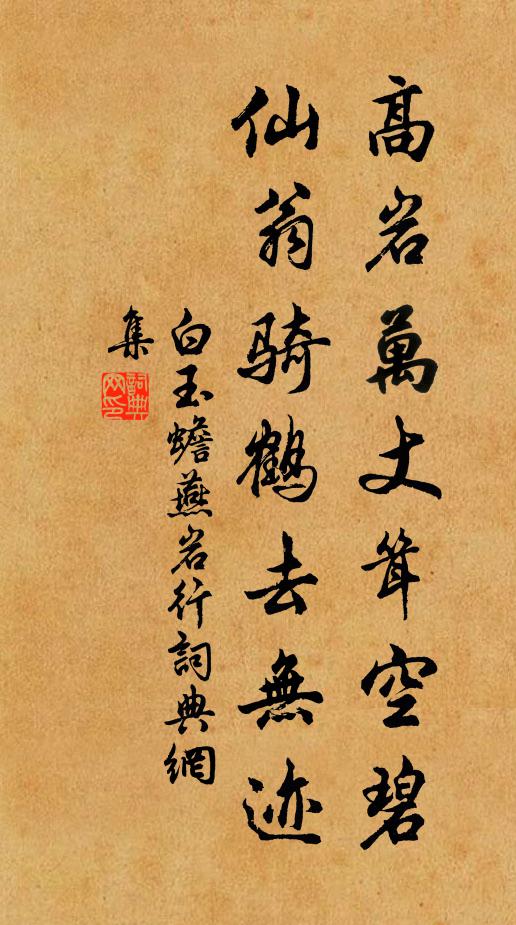 高岩萬丈聳空碧
仙翁騎鶴去無迹
白玉蟾燕岩行詞典網
集
詞典
网印